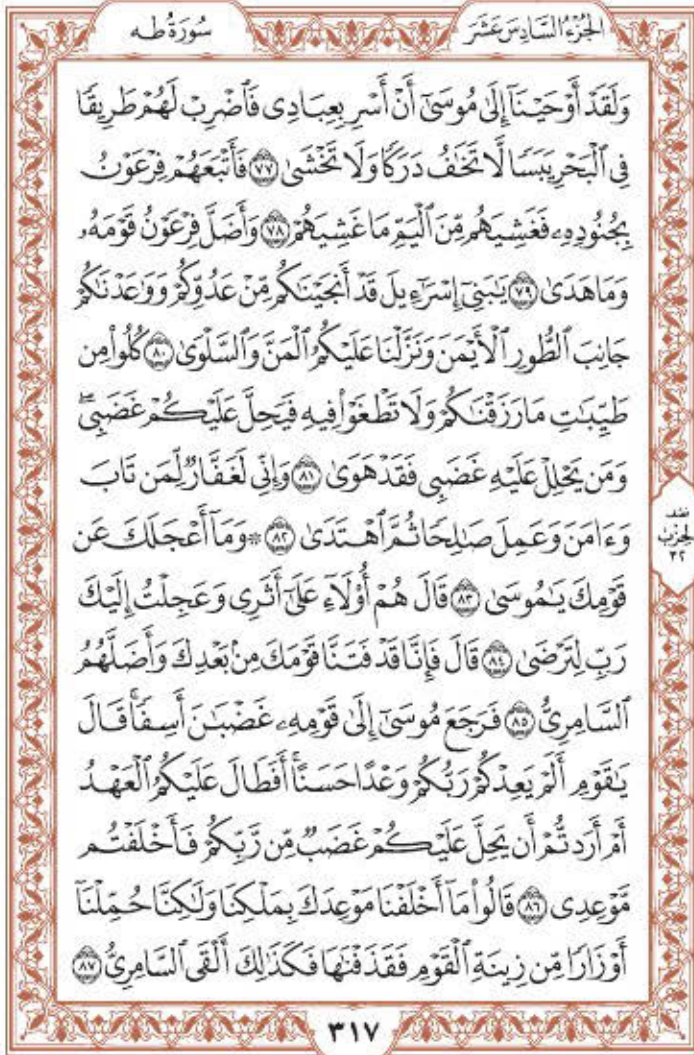 سُورَةُ طه
الجُزْءُ السَّادِسَ عَشَرَ
وَلَقَدْ أَوْحَيْنَآ إِلَىٰ مُوسَىٰٓ أَنْ أَسْرِ بِعِبَادِى فَٱضْرِبْ لَهُمْ طَرِيقًا
فِى ٱلْبَحْرِ يَبَسًا لَّا تَخَـٰفُ دَرَكًا وَلَا تَخْشَىٰ ٧٧ فَأَتْبَعَهُمْ فِرْعَوْنُ
بِجُنُودِهِۦ فَغَشِيَهُم مِّنَ ٱلْيَمِّ مَا غَشِيَهُمْ ٧٨ وَأَضَلَّ فِرْعَوْنُ قَوْمَهُۥ
وَمَا هَدَىٰ ٧٩ يَـٰبَنِىٓ إِسْرَٰٓءِيلَ قَدْ أَنجَيْنَـٰكُم مِّنْ عَدُوِّكُمْ وَوَٰعَدْنَـٰكُمْ
جَانِبَ ٱلطُّورِ ٱلْأَيْمَنَ وَنَزَّلْنَا عَلَيْكُمُ ٱلْمَنَّ وَٱلسَّلْوَىٰ ٨٠ كُلُوا۟ مِن
طَيِّبَـٰتِ مَا رَزَقْنَـٰكُمْ وَلَا تَطْغَوْا۟ فِيهِ فَيَحِلَّ عَلَيْكُمْ غَضَبِى ۖ
وَمَن يَحْلِلْ عَلَيْهِ غَضَبِى فَقَدْ هَوَىٰ ٨١ وَإِنِّى لَغَفَّارٌ لِّمَن تَابَ
وَءَامَنَ وَعَمِلَ صَـٰلِحًا ثُمَّ ٱهْتَدَىٰ ٨٢ ۞ وَمَآ أَعْجَلَكَ عَن
قَوْمِكَ يَـٰمُوسَىٰ ٨٣ قَالَ هُمْ أُو۟لَآءِ عَلَىٰٓ أَثَرِى وَعَجِلْتُ إِلَيْكَ
رَبِّ لِتَرْضَىٰ ٨٤ قَالَ فَإِنَّا قَدْ فَتَنَّا قَوْمَكَ مِنۢ بَعْدِكَ وَأَضَلَّهُمُ
ٱلسَّامِرِىُّ ٨٥ فَرَجَعَ مُوسَىٰٓ إِلَىٰ قَوْمِهِۦ غَضْبَـٰنَ أَسِفًا ۚ قَالَ
يَـٰقَوْمِ أَلَمْ يَعِدْكُمْ رَبُّكُمْ وَعْدًا حَسَنًا ۚ أَفَطَالَ عَلَيْكُمُ ٱلْعَهْدُ
أَمْ أَرَدتُّمْ أَن يَحِلَّ عَلَيْكُمْ غَضَبٌ مِّن رَّبِّكُمْ فَأَخْلَفْتُم
مَّوْعِدِى ٨٦ قَالُوا۟ مَآ أَخْلَفْنَا مَوْعِدَكَ بِمَلْكِنَا وَلَـٰكِنَّا حُمِّلْنَآ
أَوْزَارًا مِّن زِينَةِ ٱلْقَوْمِ فَقَذَفْنَـٰهَا فَكَذَٰلِكَ أَلْقَى ٱلسَّامِرِىُّ ٨٧
نصف
الحزب
٣٢
٣١٧